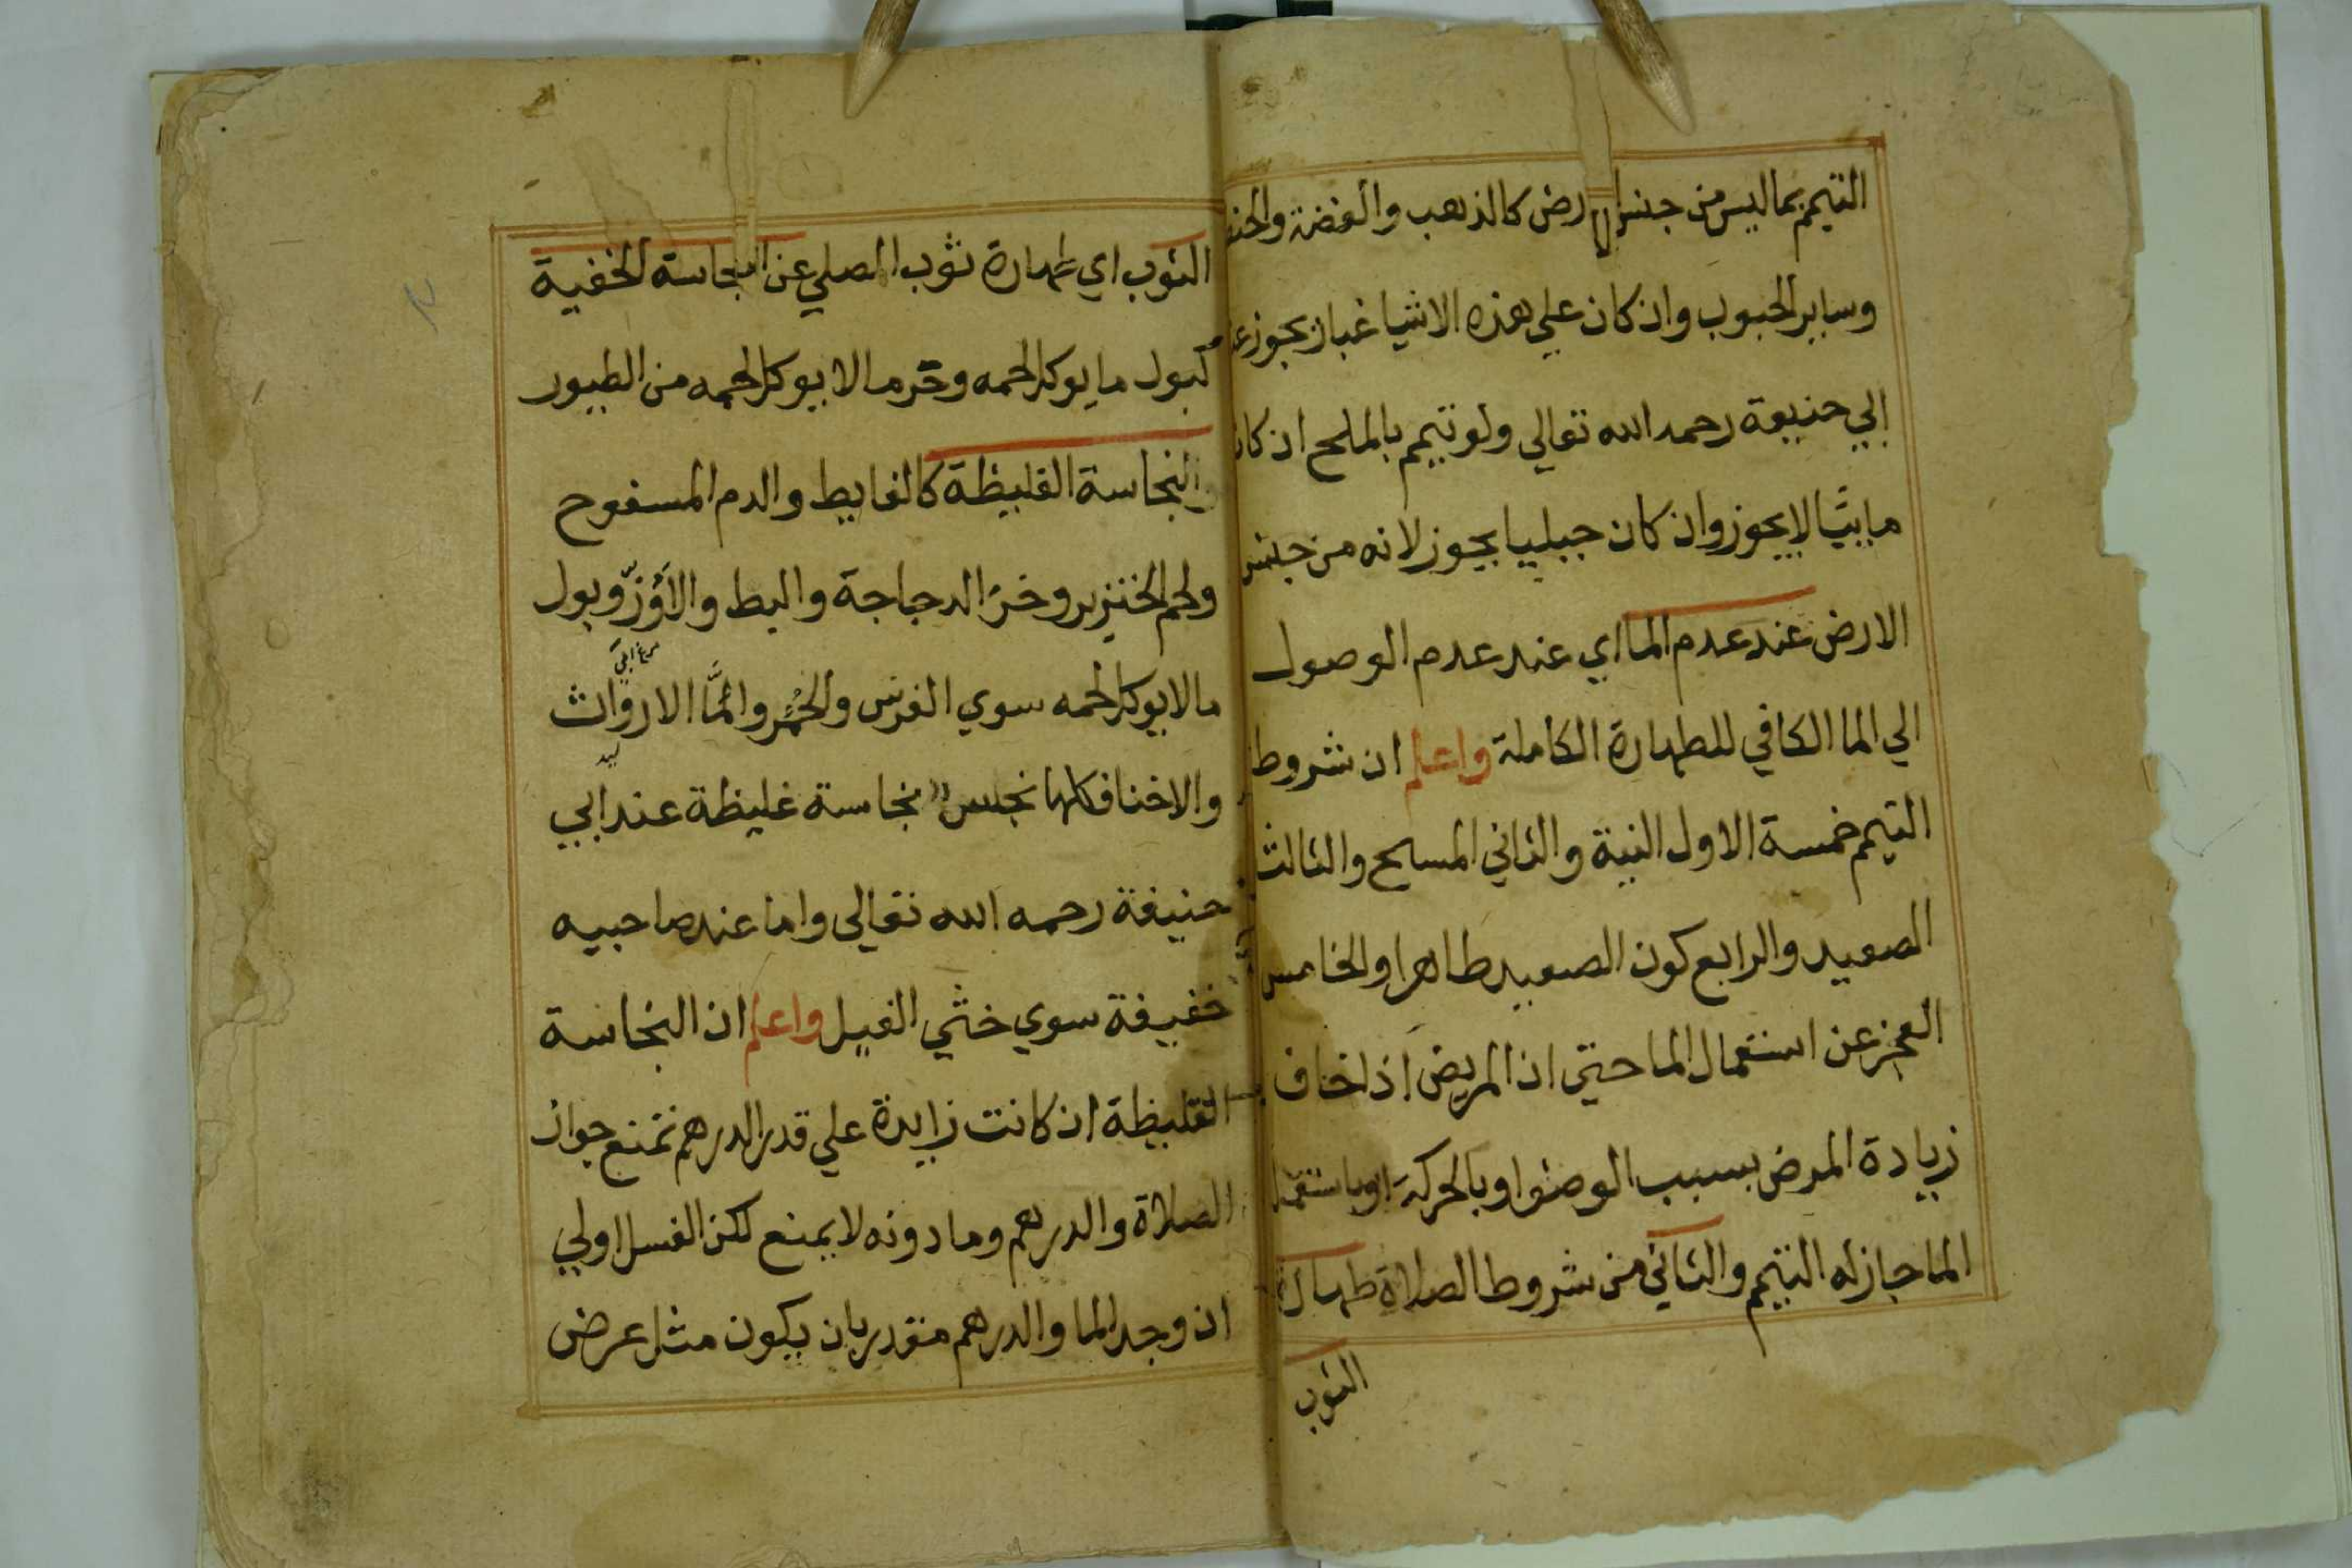 التيمم بما ليس من جنس الارض كالذهب والفضة والحنط
وساير الحبوب وان كان علي هذه الاشيا غبار يجوز عند
ابي حنيفة رحمه الله تعالي ولو تيمم بالملح ان كان
مايئا لا يجوز وان كان جبليا يجوز لانه من جنس
الارض عند عدم الما اي عند عدم الوصول
الي الما الكافي للطهارة الكاملة واعلم ان شروط
التيمم خمسة الاول النية والثاني المسح والثالث
الصعيد والرابع كون الصعيد طاهرا والخامس
العجز عن استعمال الما حتي ان المريض اذا خاف
زيادة المرض بسبب الوضوا وبالحركة او باستعمال
الما جاز له التيمم والثاني من شروط الصلاة طهارة
الثوب
الثوب اي طهارة ثوب المصلي عن النجاسة الخفية
كبول ما يوكل لحمه وخرء ما لا يوكل لحمه من الطيور
والنجاسة الغليظة كالغايط والدم المسفوح
ولحم الخنزير وخرء الدجاجة والبط والاوز وبول
ما لا يوكل لحمه سوي الفرس والحمر واما الارواث
والاخثا فكلها نجس نجاسة غليظة عند ابي
حنيفة رحمه الله تعالي واما عند صاحبيه
خفيفة سوي خثي الفيل واعلم ان النجاسة
الغليظة ان كانت زايدة علي قدر الدرهم تمنع جواز
الصلاة والدرهم وما دونه لا يمنع لكن الغسل اولي
ان وجد الما والدرهم مقدر بان يكون مثل عرض